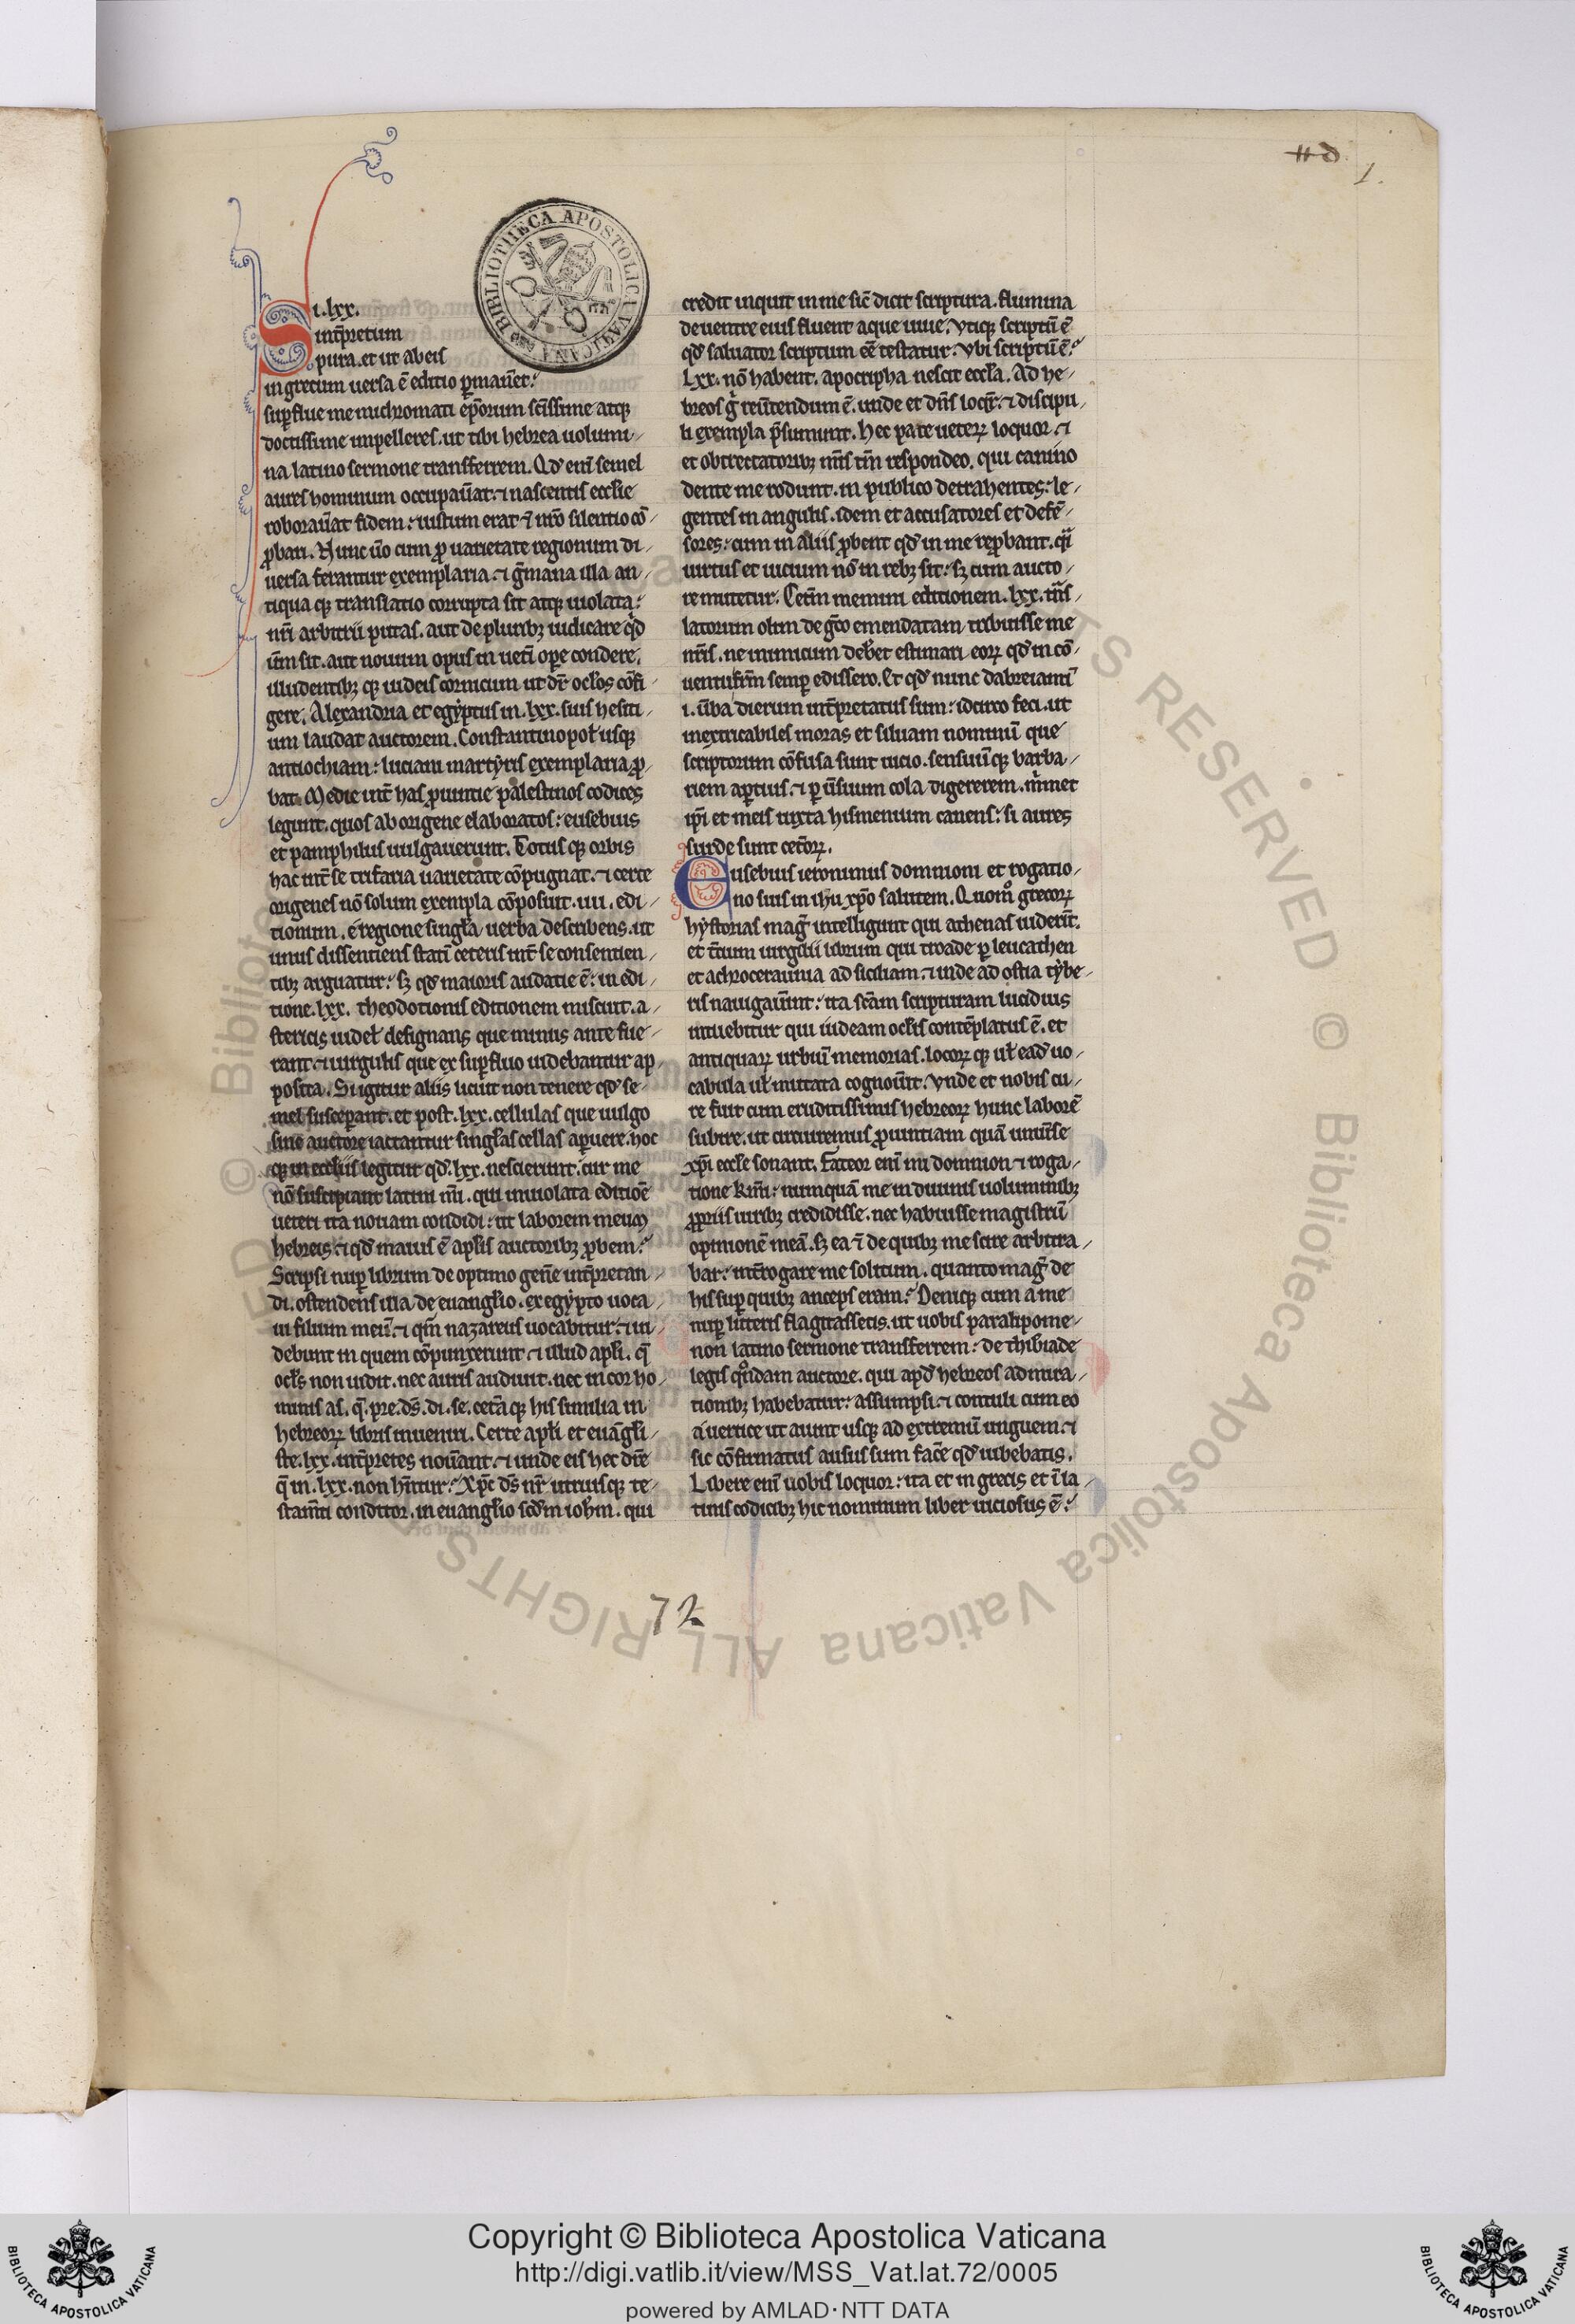 116
1.
BIBLIOTHECA APOSTOLICA VATICANA
Si.lxx.
int̄pretum
pura.et ut ab eis
in grecum uersa ē editio ꝑmaneret:
suꝑflue me mi chromati ep̄orum scīssime atqꝫ
doctissime impelleres.ut tibi hebrea uolumi-
na latino sermone transferrem. Qd̄ enī semel
aures hominum occupau̅at.⁊ nascentis eccl̄ie
roborau̅at fidem: iustum erat ⁊ nr̄o silentio cō-
ꝓbari. Nunc ū̊o cum ꝓ uarietate regionum di-
uersa ferantur exemplaria.⁊ g̅mana illa an-
tiqua qꝫ translatio corrupta sit atqꝫ uiolata:
nr̄i arbitrii putas. aut de pluribꝫ iudicare qd̄
ūm sit. aut nouum opus in ueti oꝑe condere.
illudentibꝫ qꝫ iudeis cornicum ut dr̄ ocl̄os cōfi-
gere. Alexandria et egyptus in.lxx.suis hesiti-
um laudat auctorem. Constantinopol̄ usqꝫ
antiochiam: luciani martyris exemplaria ꝓ-
bat. Medie int̄ has ꝓuintie palestinos codices
legunt. quos ab origene elaboratos: eusebius
et pamphilus uulgauerunt. Totus qꝫ orbis
hac int̄ se trifaria uarietate cōpugnat.⁊ certe
origenes nō solum exempla cōposuit.iiii.edi-
tionum.e regione singl̄a uerba describens.ut
unus dissentiens statī ceteris int̄ se consentien-
tibꝫ arguatur: sꝫ qd̄ maioris audatie ē: in edi-
tione.lxx. theodotionis editionem miscuit.a-
stericis uidel̄ designans que minus ante fue-
rant.⁊ uirgulis que ex suꝑfluo uidebantur ap-
posita. Si igitur aliis licuit non tenere qd̄ se-
mel susceꝑant.et post.lxx.cellulas que uulgo
sine auctore iactantur singl̄as cellas aꝑuere.hoc
qꝫ in eccl̄iis legitur qd̄.lxx.nescierunt.cur me
nō suscipiant latini mī. qui inuiolata editiōe
ueteri ita nouam condidi: ut laborem meum
hebreis.⁊ qd̄ maius ē apl̄is auctoribꝫ ꝓbem:
Scripsi nuꝑ librum de optimo gen̄e int̄pretan-
di.ostendens illa de euangl̄io. ex egypto uoca-
ui filium meū.⁊ qm̄ nazareus uocabitur.⁊ ui-
debunt in quem cōpunxerunt.⁊ illud apl̄i. q̄
ocl̄s non uidit.nec auris audiuit.nec in cor ho-
minis as. q̄. pre.ds̄.di.se.cet̄a qꝫ his similia in
hebreoꝝ libris inueniri. Certe apl̄i et euāgl̄i-
ste.lxx.int̄pretes nou̅ant.⁊ unde eis hec dic̄e
q̄ in.lxx.non hn̄tur: Xp̄c ds̄ nr̄ utriusqꝫ te-
stam̄ti conditor.in euangl̄io scd̄m ioh̄m. qui
credit inquit in me sic̄ dicit scriptura. flumina
de uentre eius fluent aque uiue. Vtiqꝫ scriptū ē
qd̄ saluator scriptum eē testatur. Vbi scriptū ē:
Lxx. nō habent. apocripha nescit eccl̄a. Ad he-
breos g̊ reūtendum ē. unde et dn̄s loqr̄.⁊ discipu-
li exempla p̄sumunt. Hec pace ueteꝝ loquor.⁊
et obtrectatoribꝫ m̄is tm̄ respondeo. qui canino
dente me rodunt. in publico detrahentes: le-
gentes in angulis. idem et accusatores et defē-
sores: cum in aliis ꝓbent qd̄ in me reꝓbant. qͣi
uirtus et uicium nō in rebꝫ sit: sꝫ cum aucto-
re mutetur. Cetm̄ memini editionem.lxx.tͣns-
latorum olim de g̅co emendatam tribuisse me
nr̄is. ne inimicum debet estimari eoꝝ qd̄ in cō-
uentu fr̄m semꝑ edissero. Et qd̄ nunc dabreiami
.i.ūba dierum int̄pretatus sum: idcirco feci.ut
inextricabiles moras et siluam nominū que
scriptorum cōfusa sunt uicio. sensuū qꝫ barba-
riem aꝑtius.⁊ ꝑ ūsuum cola digererem. m̊met
ip̄i et meis iuxta hismenium canens: si aures
surde sunt cet̄oꝝ.
Eusebius ieronimus domnioni et rogatio-
no suis in ih̄u xp̄o salutem. Quom̊ grecoꝝ
hystorias mag̊ intelligunt qui athenas uiderīt.
et t̄cium uirgilii librum qui troade ꝑ leucathen
et achroceraunia ad siciliam.⁊ inde ad ostia tybe-
ris nauigau̅int: ita sc̄am scripturam lucidius
intuebitur qui iudeam ocl̄is contēplatus ē. et
antiquaꝝ urbiū memorias. locoꝝ qꝫ ul̄ ead̄ uo-
cabula ul̄ mutata cognou̅it. Vnde et nobis cu-
re fuit cum eruditissimis hebreoꝝ hunc laborē
subire.ut circuiremus ꝓuintiam quā uniūse
xp̄i eccl̄e sonant. Fateor enī mi domnion ⁊ roga-
tione km̄i: numquā me in diuinis uoluminibꝫ
ꝓpriis uiribꝫ credidisse. nec habuisse magistrū
opinionē meā. sꝫ ea ⁊ de quibꝫ me scire arbitra-
bar: int̄rogare me solitum. quanto mag̊ de
his suꝑ quibꝫ anceps eram: Deniqꝫ cum a me
nuꝑ litteris flagitassetis.ut uobis paralipome-
non latino sermone transferrem: de thibiade
legis qn̊dam auctore. qui apd̄ hebreos admira-
tionibꝫ habebatur: assumpsi.⁊ contuli cum eo
a uertice ut aiunt usqꝫ ad extremū unguem.⁊
sic cōfirmatus ausus sum fac̄e qd̄ iubebatis.
Libere enī uobis loquor: ita et in grecis et ī la-
tinis codicibꝫ hic nominum liber uiciosus ē:
72
© Biblioteca Apostolica Vaticana ALL RIGHTS RESERVED
Copyright © Biblioteca Apostolica Vaticana
http://digi.vatlib.it/view/MSS_Vat.lat.72/0005
powered by AMLAD·NTT DATA
BIBLIOTECA APOSTOLICA VATICANA
BIBLIOTECA APOSTOLICA VATICANA